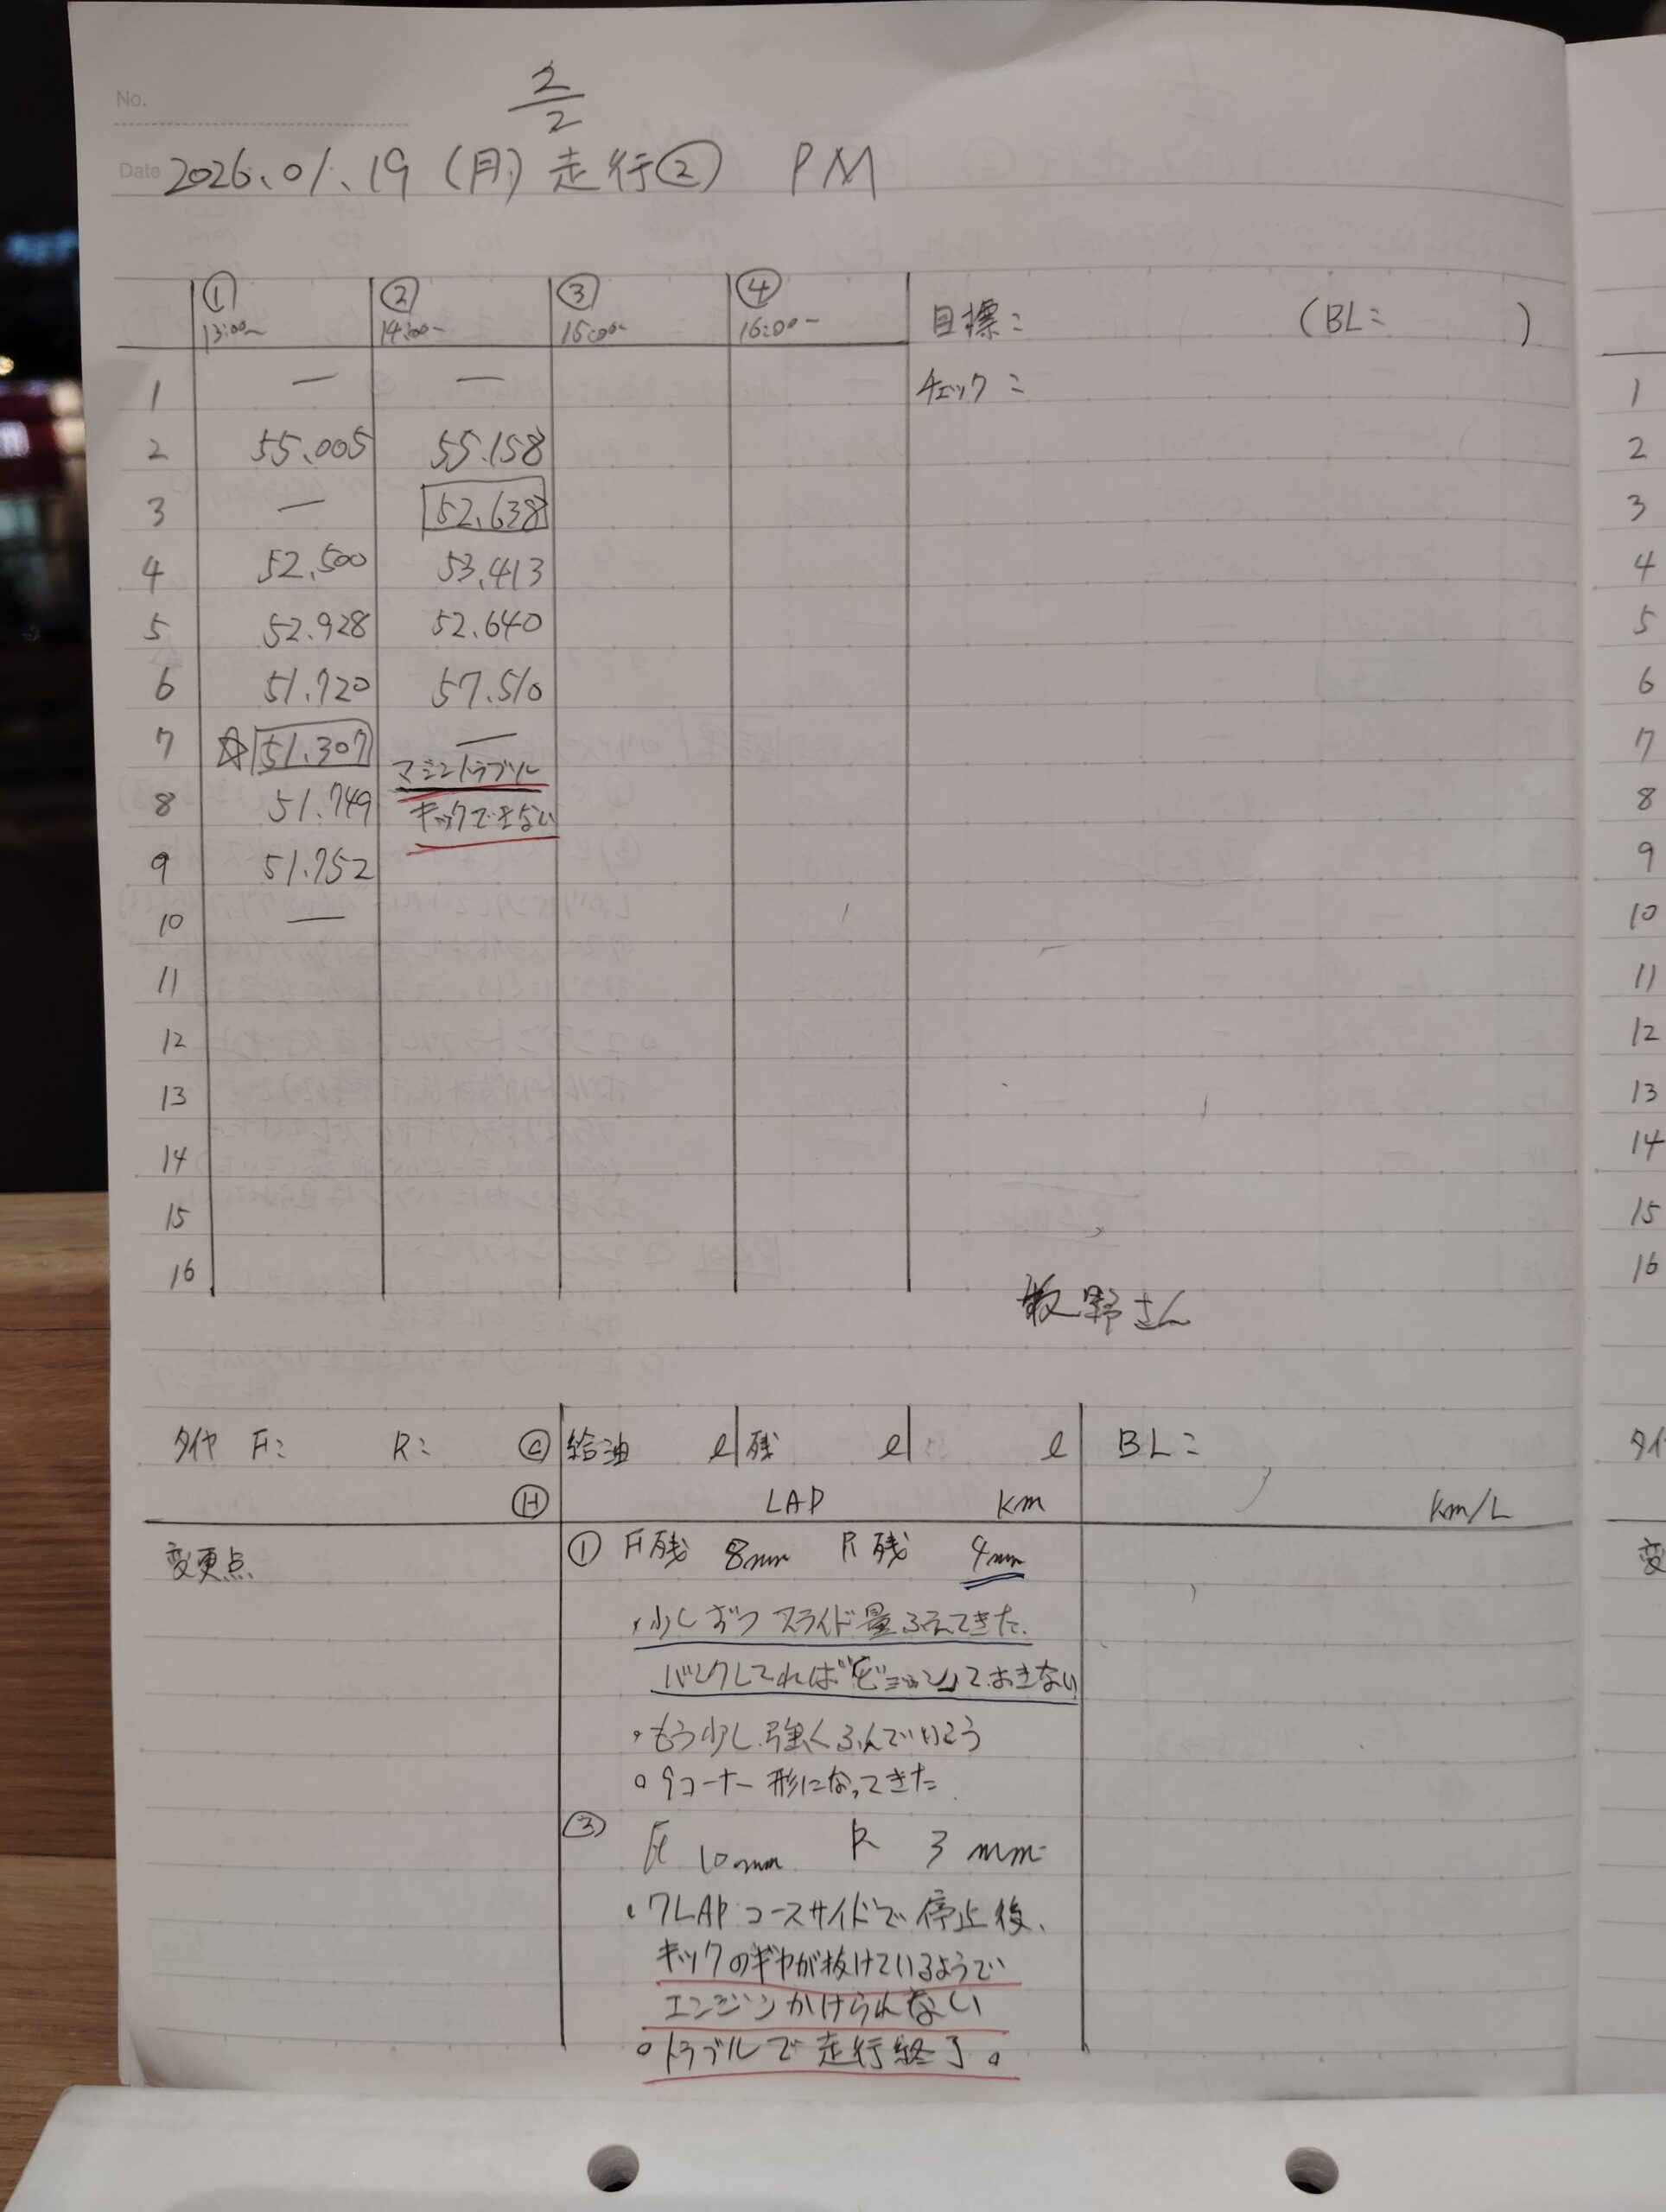 2
2
No.
Date 2026.01.19 (月) 走行② PM
① ② ③ ④
13:00~ 14:00~ 15:00~ 16:00~
目標: (BL= )
チェック:
1 — —
2 55.005 55.158
3 — 52.638
4 52.500 53.413
5 52.928 52.640
6 51.720 57.510
7 ☆ 51.307 —
マシントラブル
8 51.749 キックできない
9 51.752
10 —
11
12
13
14
15
16
野さん
タイヤ F: R: Ⓖ 給油 ℓ 残 ℓ ℓ BL=
Ⓗ LAP km km/L
変更点
① F残 8mm R残 4mm
・少しずつ スライド量ふえてきた.
バンクしてれば て おきない
・もう少し強くふんでいこう
○ 9コーナー 形になってきた
F 10mm R 3mm
・7LAP コースサイドで 停止後、
キックのギヤが抜けているようで
エンジンかけられない
○ トラブルで 走行終了。
1
2
3
4
5
6
7
8
9
10
11
12
13
14
15
16
タイ
変